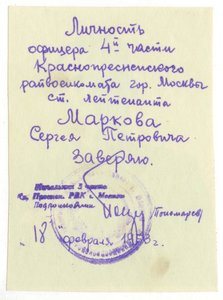 Личность
офицера 4й части
Краснопресненского
райвоенкомата гор. Москвы
ст. лейтенанта
Маркова
Сергея Петровича
Заверяю.
Начальник 3 части
Кр. Преснен. РВК г. Москвы
Подполковник
(Пономарев)
"18" февраля г.